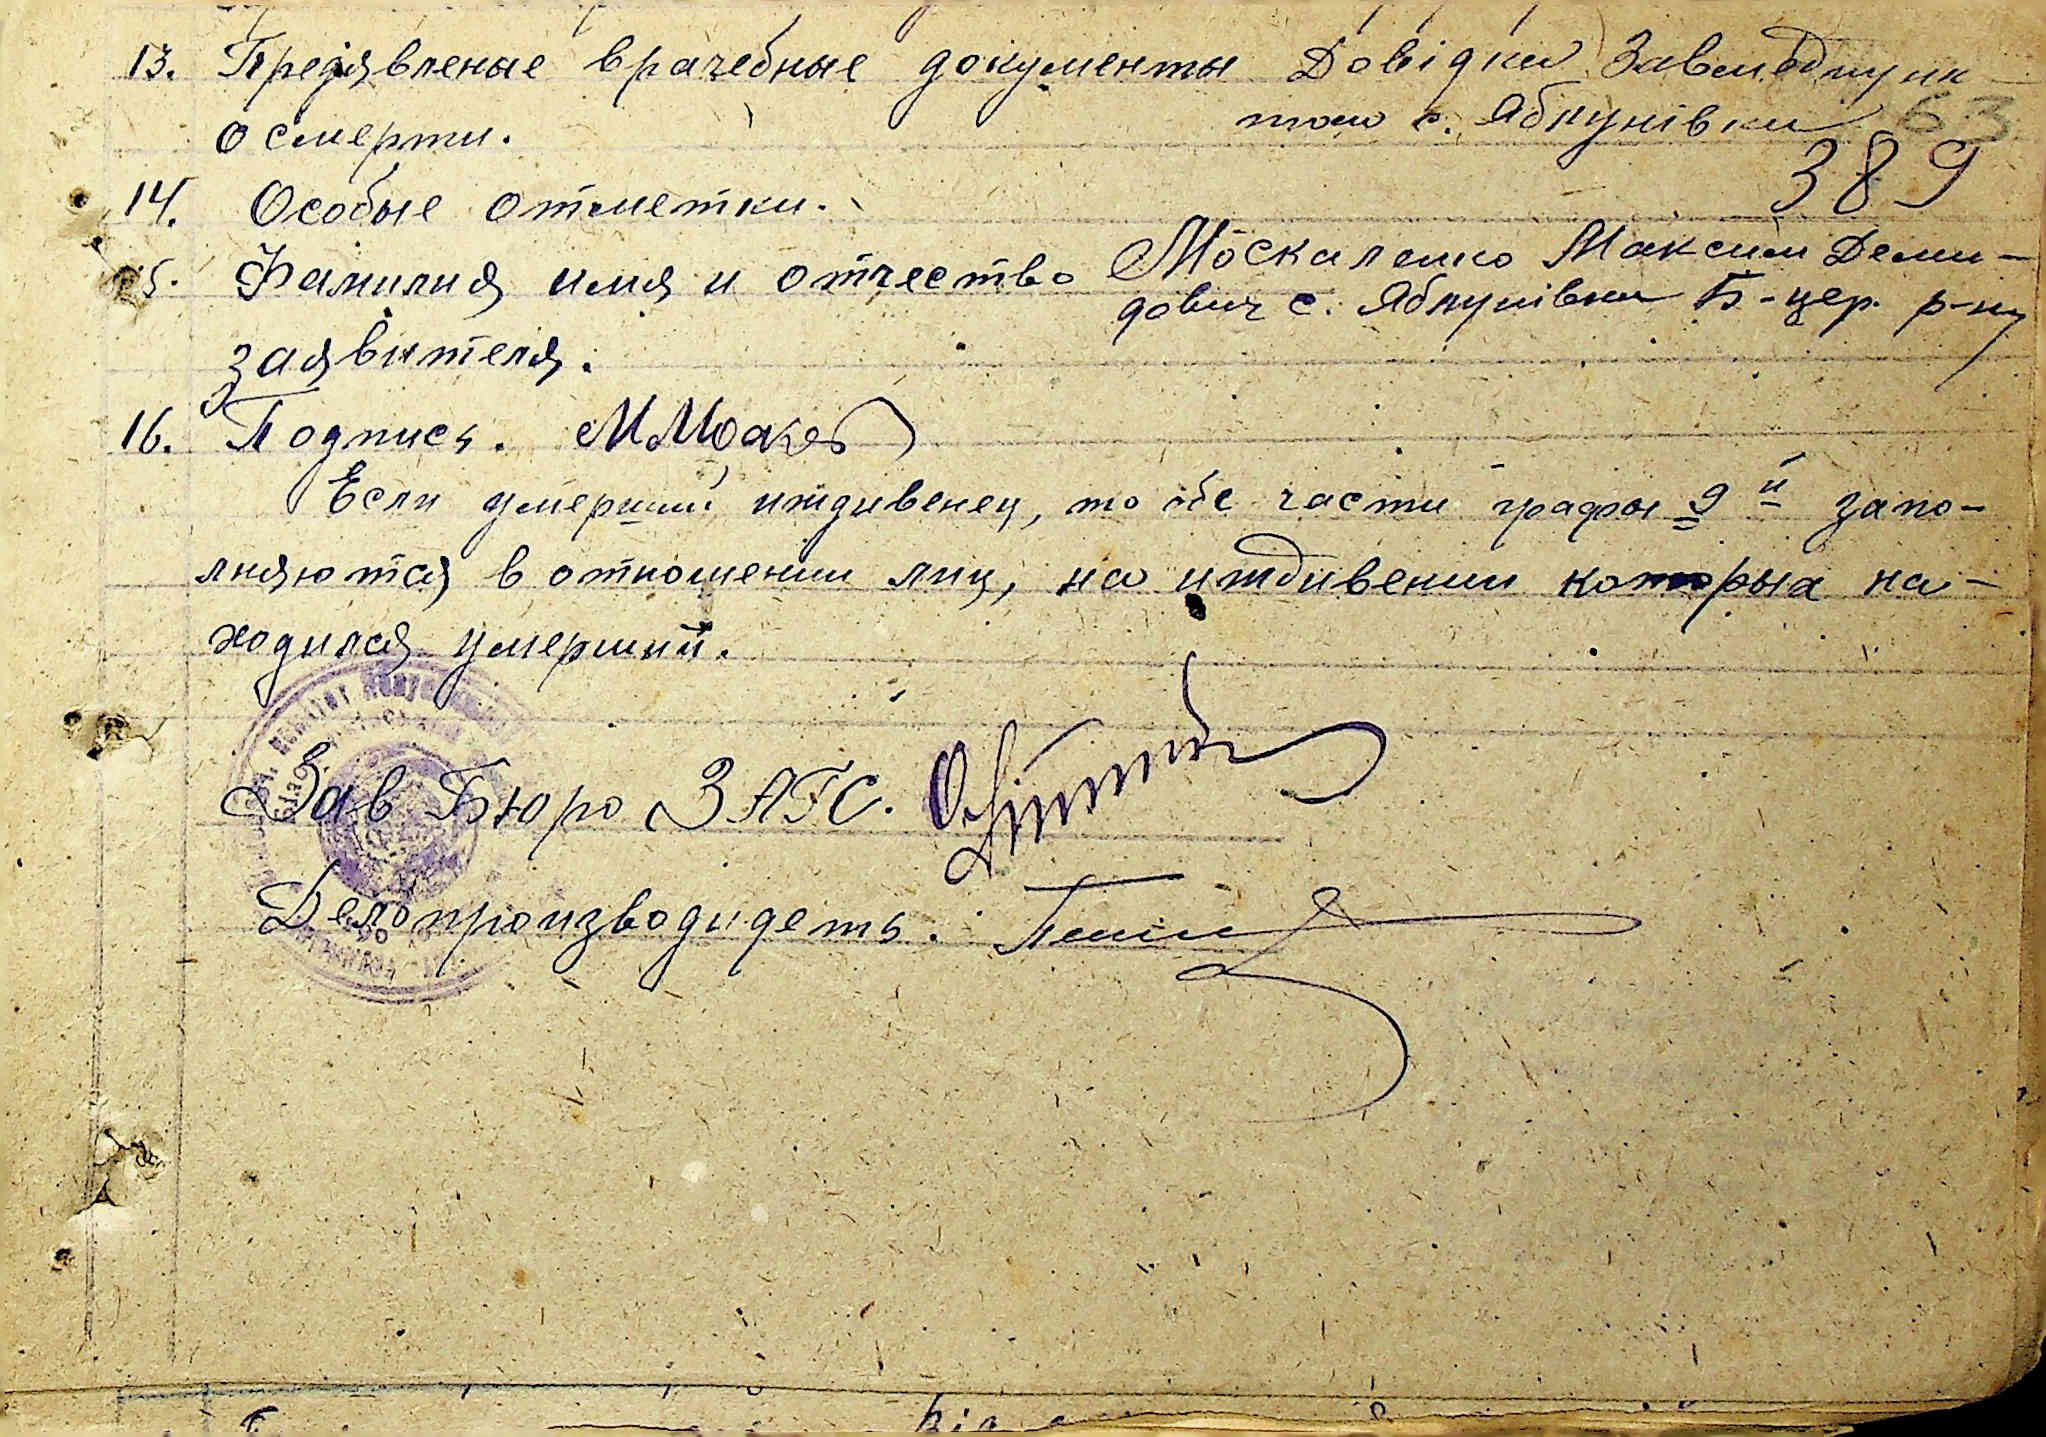 13. Предявленые врачебные документы Довідка Завмедпунк-
том с. Яблунівки 63
о смерти.
389
14. Особые отметки.
15. Фамилия имя и отчество Москаленко Максим Деми-
дович с. Яблунівки Б-цер. р-ну
заявителя.
16. Подпись.
Если умерший иждивенец, то обе части графы 9й запо-
лняются в отношении лиц, на иждивении которых на-
ходился умерший.
Зав Бюро ЗАГС.
Делопроизводидеть.